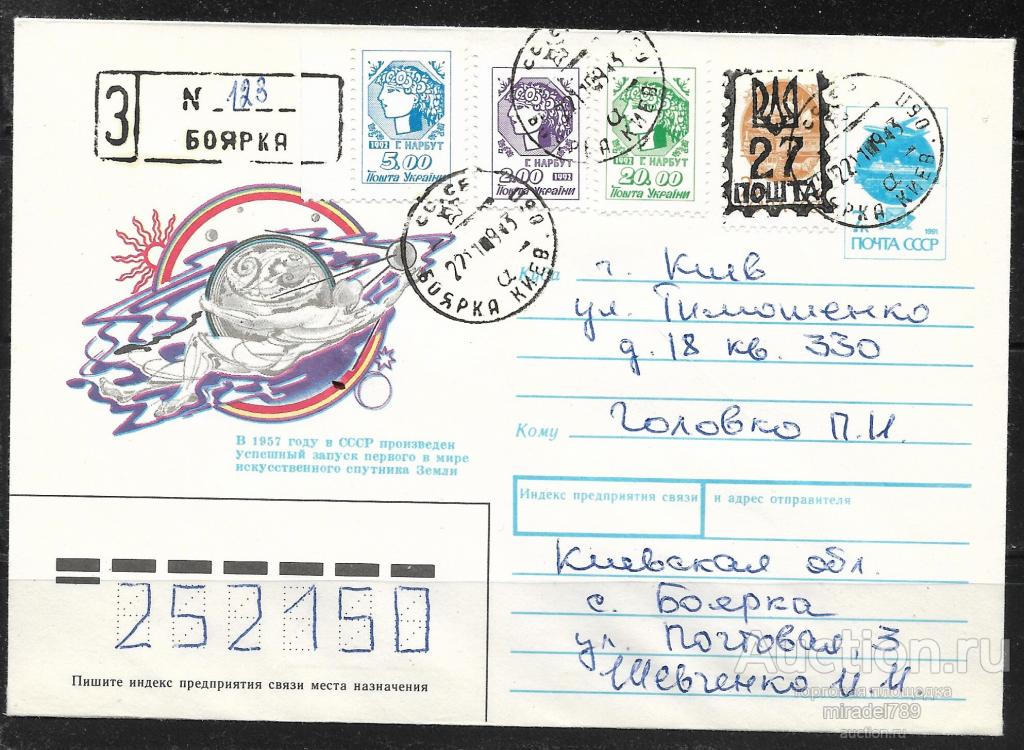 З
N 123
БОЯРКА
1992 Г. НАРБУТ
5.00
Пошта України
Г. НАРБУТ
2.00 1992
Пошта України
1992 Г. НАРБУТ
20.00
Пошта України
27
ПОШТА
1991
ПОЧТА СССР
СССР
БОЯРКА КИЕВ
Куда г. Киев
ул. Тимошенко
д. 18 кв. 330
Кому Головко П.И.
В 1957 году в СССР произведен
Успешный запуск первого в мире
искусственного спутника Земли
Индекс предприятия связи и адрес отправителя
Киевская обл.
с. Боярка
ул. Почтовая, 3
Шевченко И.И
252150
Пишите индекс предприятия связи места назначения
Auction.ru
торговая площадка
miradel789
auction.ru